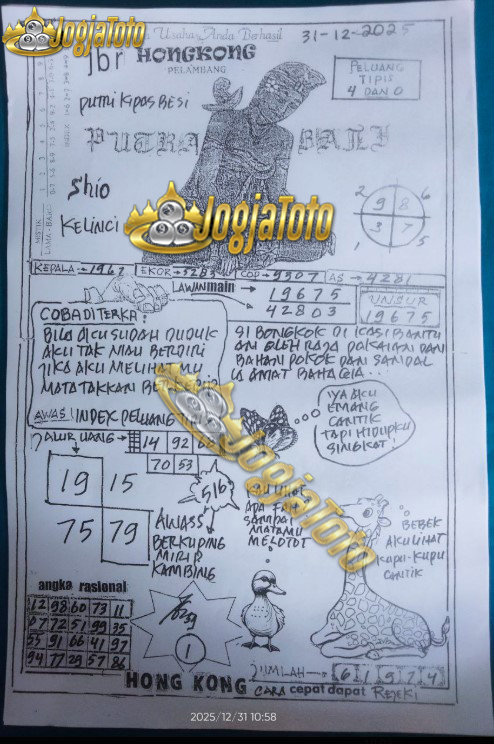 JogjaToto
Usaha Anda Berhasil
31-12-2025
jbr HONGKONG
PELAMBANG
PELUANG
TIPIS
4 DAN 0
PUTRI KIPAS BESI
PUTRA BALI
Shio
KELINCI
2 6
9 8
3 7
1 5
JogjaToto
KEPALA → 1967 EKOR → 5283 COP → 9507 AS → 4281
LAWAN main
19675
42803
UNSUR
19675
COBA DI TERKA:
BILA AKU SUDAH DUDUK
AKU TAK MAU BERDIRI
JIKA AKU MELIHAT MU
MATA TAKKAN
AWAS! INDEX PELUANG
SI BONGKOK DI KASI BANTU
AN OLEH RAJA PAKAIAN DAN
BAHAN POKOK DAN SANDAL
LA AMAT BAHAGIA...
IYA AKU
EMANG
CANTIK
TAPI HIDUPKU
SINGKAT!
JALUR UANG → 14 92
70 53
JogjaToto
19 15
75 79
516
AWASS
BERKUPING
MIRIP
KAMBING
ADA
SAMPAI
MATAMU
MELOTOT
BEBEK
AKU LIHAT
KUPU-KUPU
CANTIK
angka rasional
12 98 60 73 11
07 72 51 99 35
55 91 66 41 97
94 77 29 57 86
1
JUMLAH → 6 1 9 7 4
HONG KONG CARA cepat dapat REJEKI
2025/12/31 10:58